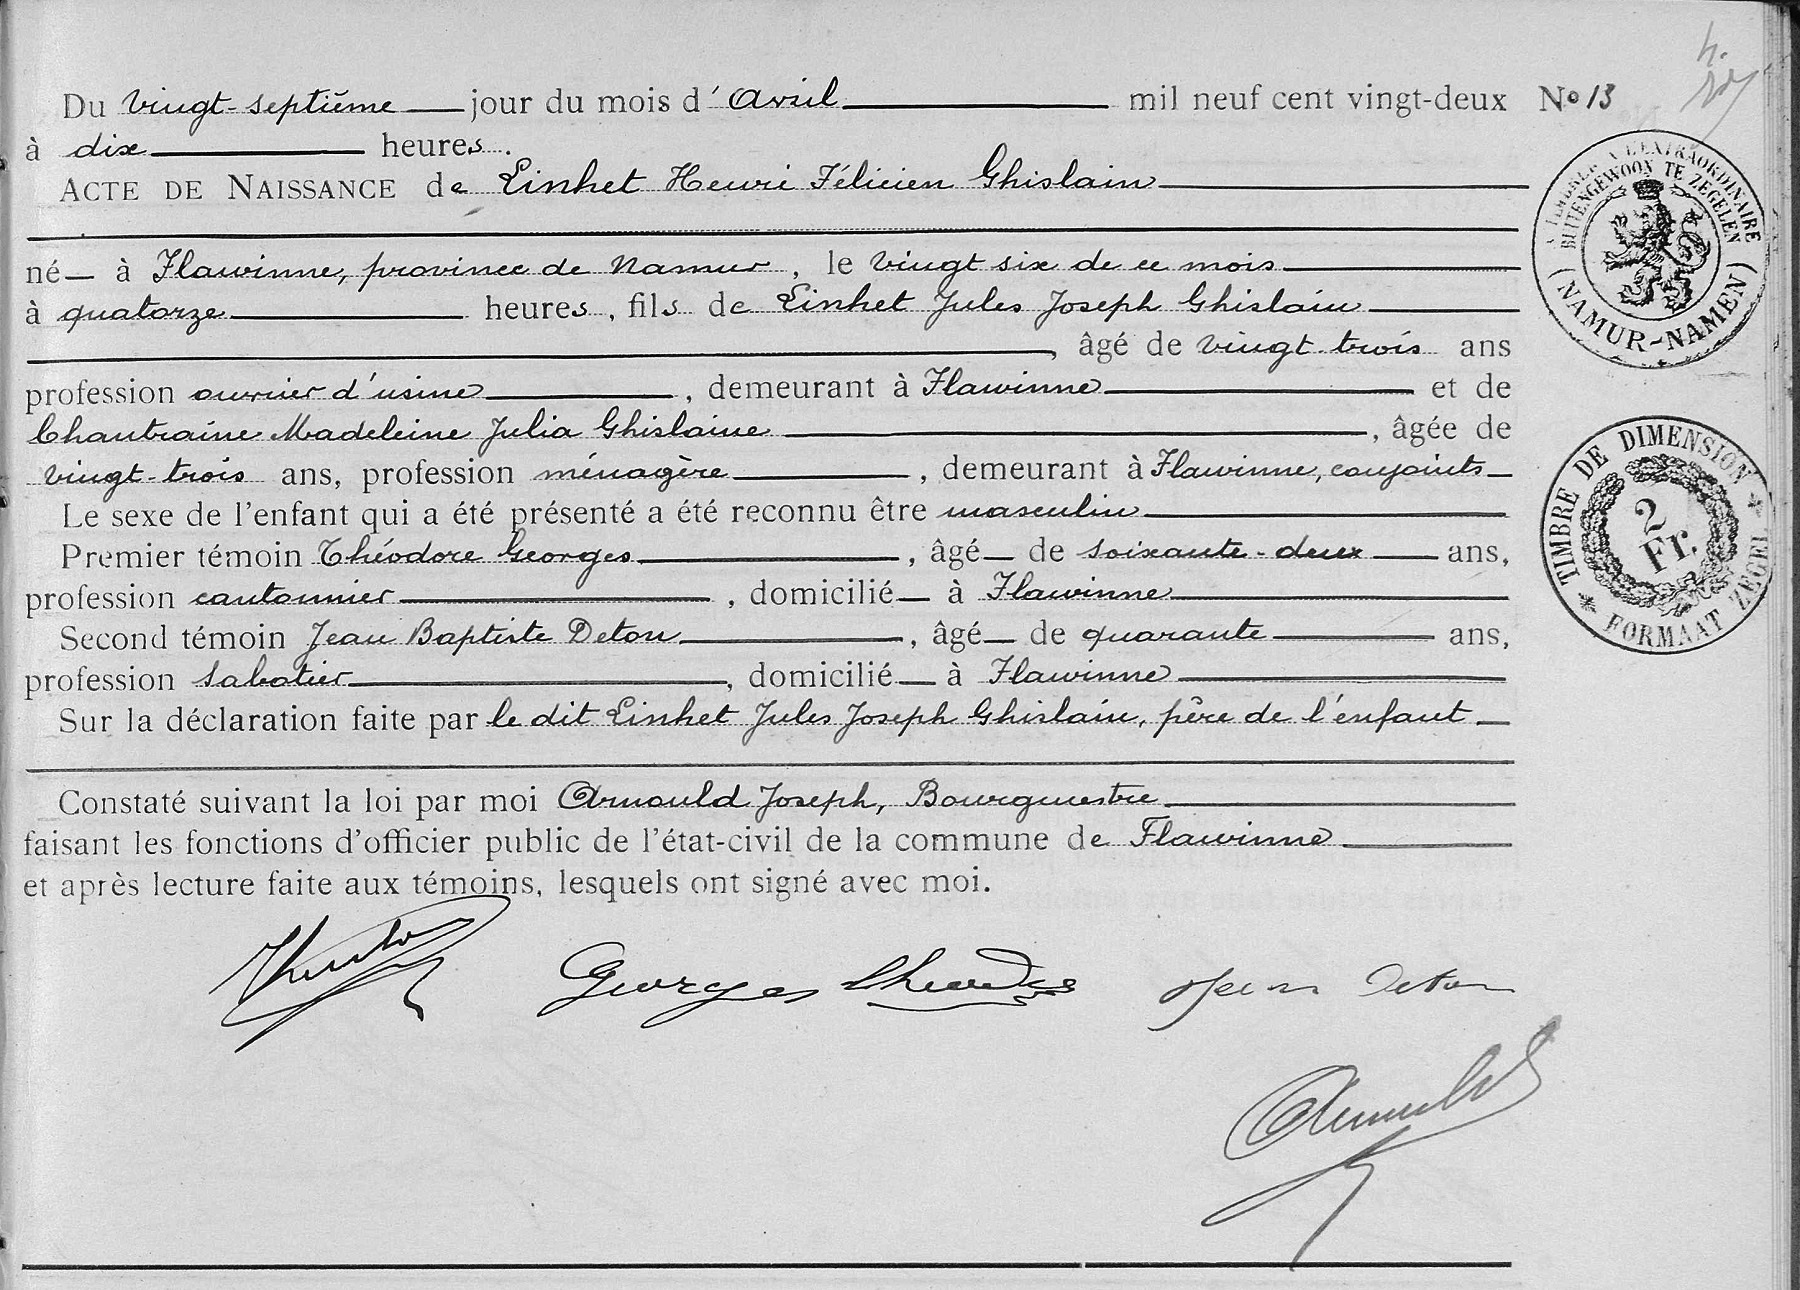 Du vingt-septième jour du mois d'Avril mil neuf cent vingt-deux No 13
à dix heures.
ACTE DE NAISSANCE de Linhet Henri Félicien Ghislain
né à Flawinne, province de Namur, le vingt six de ce mois
à quatorze heures, fils de Linhet Jules Joseph Ghislain
, âgé de vingt trois ans
profession ouvrier d'usine, demeurant à Flawinne et de
Chantraine Madeleine Julia Ghislaine, âgée de
vingt-trois ans, profession ménagère, demeurant à Flawinne, conjoints
Le sexe de l'enfant qui a été présenté a été reconnu être masculin
Premier témoin Théodore Georges, âgé de soixante-deux ans,
profession cantonnier, domicilié à Flawinne
Second témoin Jean Baptiste Deton, âgé de quarante ans,
profession sabotier, domicilié à Flawinne
Sur la déclaration faite par le dit Linhet Jules Joseph Ghislain, père de l'enfant
Constaté suivant la loi par moi Arnould Joseph, Bourgmestre
faisant les fonctions d'officier public de l'état-civil de la commune de Flawinne
et après lecture faite aux témoins, lesquels ont signé avec moi.
Georges Théodore Jean Deton
Arnould
TIMBRER A L'EXTRAORDINAIRE
BUITENGEWOON TE ZEGELEN
(NAMUR-NAMEN)
TIMBRE DE DIMENSION
2
Fr.
FORMAAT ZEGEL